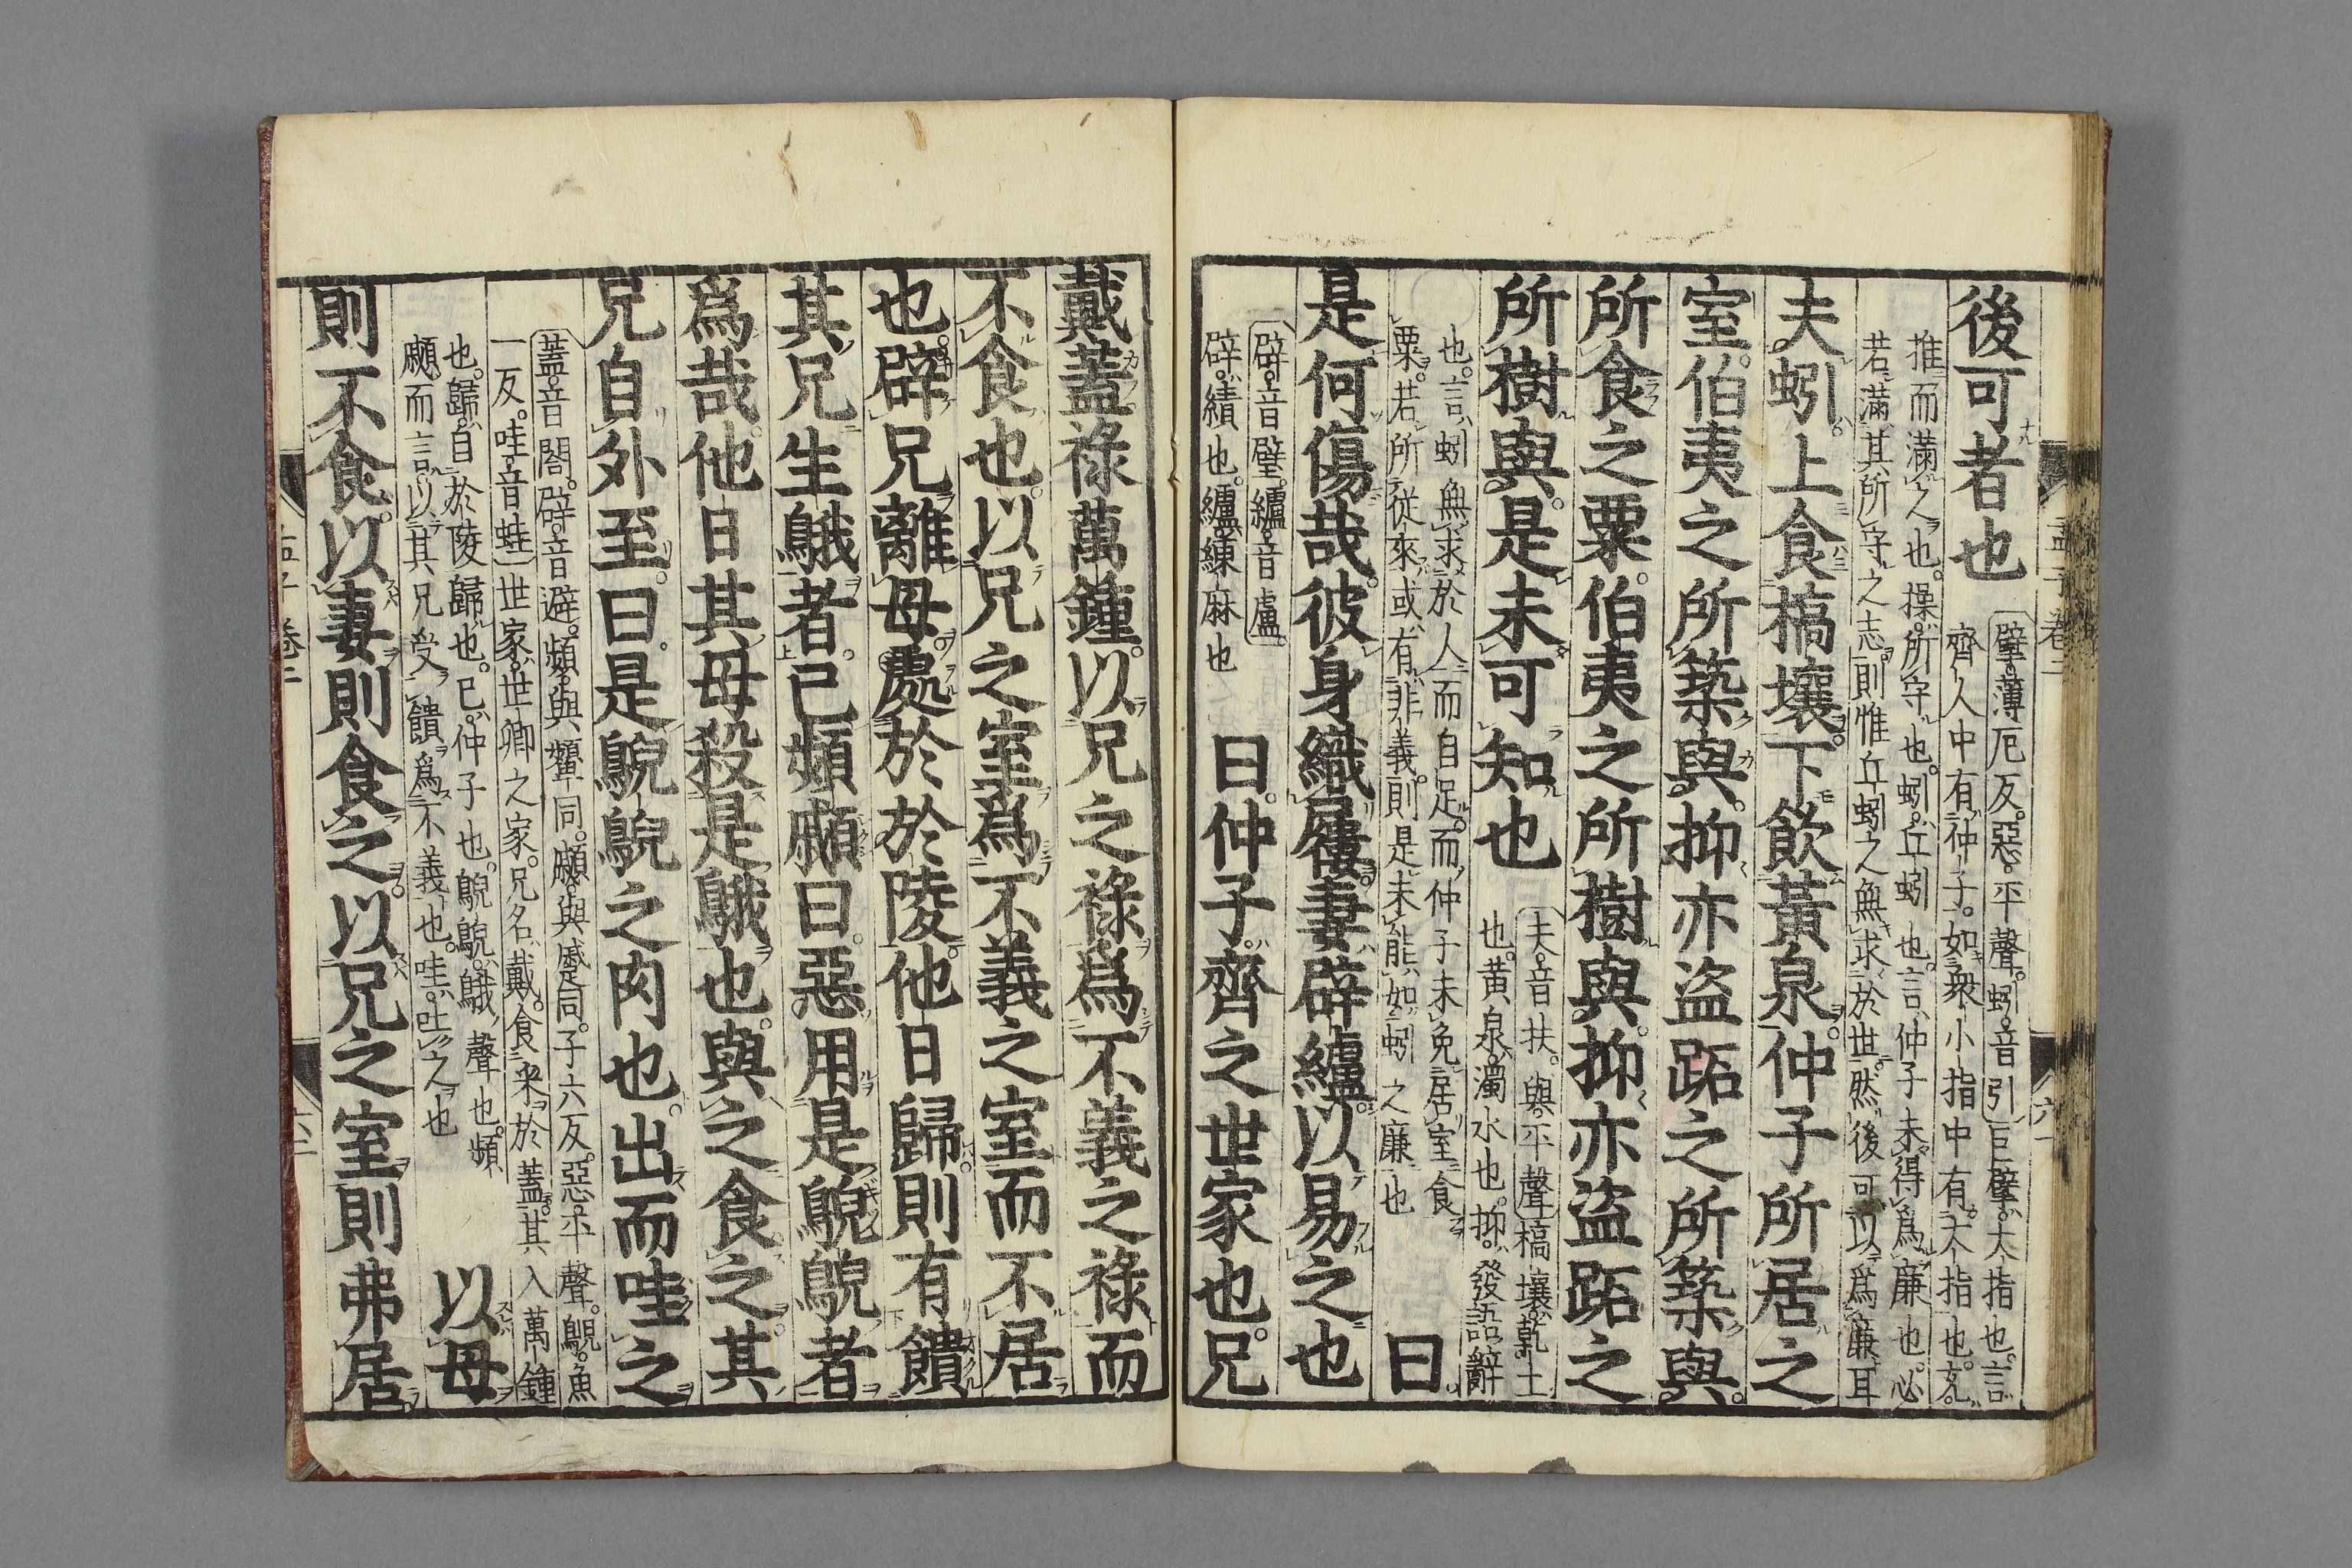 後可者也
擘薄厄反惡平聲蚓音引巨擘大指也言
齊人中有仲子如衆小指中有大指也充
推而滿之也操所守也蚓丘蚓也言仲子未得爲廉也必
若滿其所守之志則惟丘蚓之無求於世然後可以爲廉耳
夫蚓上食槁壤下飲黃泉仲子所居之
室伯夷之所築與抑亦盜跖之所築與
所食之粟伯夷之所樹與抑亦盜跖之
所樹與是未可知也
夫音扶與平聲槁壤乾土
也黃泉濁水也抑發語辭
也言蚓無求於人而自足而仲子未免居室食
粟若所從來或有非義則是未能如蚓之廉也
曰
是何傷哉彼身織屨妻辟纑以易之也
辟音璧纑音盧
辟績也纑練麻也
曰仲子齊之世家也兄
戴蓋祿萬鍾以兄之祿爲不義之祿而
不食也以兄之室爲不義之室而不居
也辟兄離母處於於陵他日歸則有饋
其兄生鵝者己頻顣曰惡用是鶃鶃者
爲哉他日其母殺是鵝也與之食之其
兄自外至曰是鶃鶃之肉也出而哇之
蓋音閤辟音避頻與顰同顣與蹙同子六反惡平聲鶃魚
一反哇音蛙世家世卿之家兄名戴食采於蓋其入萬鍾
也歸自於陵歸也己仲子也鶃鶃鵝聲也頻
顣而言以其兄受饋爲不義也哇吐之也
以母
則不食以妻則食之以兄之室則弗居